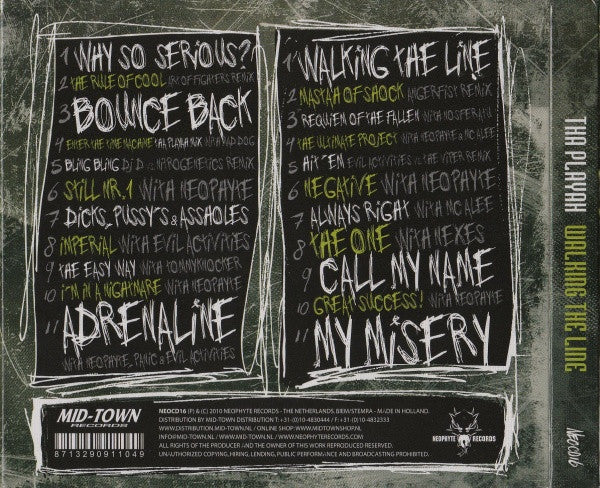 1 WHY SO SERIOUS?
2 THE RULE OF COOL ART OF FIGHTERS REMIX
3 BOUNCE BACK
4 ENTER THE TIME MACHINE THA PLAYAH MIX WITH MAD DOG
5 BLING BLING DJ D VS NITROGENETICS REMIX
6 STILL NR.1 WITH NEOPHYTE
7 DICKS, PUSSY'S & ASSHOLES
8 IMPERIAL WITH EVIL ACTIVITIES
9 THE EASY WAY WITH TOMMYKNOCKER
10 I'M IN A NIGHTMARE WITH NEOPHYTE
11 ADRENALINE
WITH NEOPHYTE, PANIC & EVIL ACTIVITIES
1 WALKING THE LINE
2 MASTAH OF SHOCK ANGERFIST REMIX
3 REQUIEM OF THE FALLEN WITH NOSFERATU
4 THE ULTIMATE PROJECT WITH NEOPHYTE & MC ALEE
5 HIT 'EM EVIL ACTIVITIES VS THE VIPER REMIX
6 NEGATIVE WITH NEOPHYTE
7 ALWAYS RIGHT WITH MC ALEE
8 THE ONE WITH NEXES
9 CALL MY NAME
10 GREAT SUCCESS! WITH NEOPHYTE
11 MY MISERY
THA PLAYAH WALKING THE LINE
NEOCD16
MID-TOWN
RECORDS
8713290911049
NEOCD16 (P) & (C) 2010 NEOPHYTE RECORDS - THE NETHERLANDS. BIEM/STEMRA - MADE IN HOLLAND.
DISTRIBUTION BY MID-TOWN DISTRIBUTION T: +31-(0)10-4830444 / F: +31-(0)10-4832333
WWW.DISTRIBUTION.MID-TOWN.NL / ONLINE SHOP: WWW.MIDTOWNSHOP.NL
INFO@MID-TOWN.NL / WWW.MID-TOWN.NL / WWW.NEOPHYTERECORDS.COM
ALL RIGHTS OF THE PRODUCER AND THE OWNER OF THIS WORK REPRODUCED RESERVED.
UNAUTHORIZED COPYING, HIRING, LENDING, PUBLIC PERFORMANCE AND BROADCASTING PROHIBITED.
NEOPHYTE RECORDS